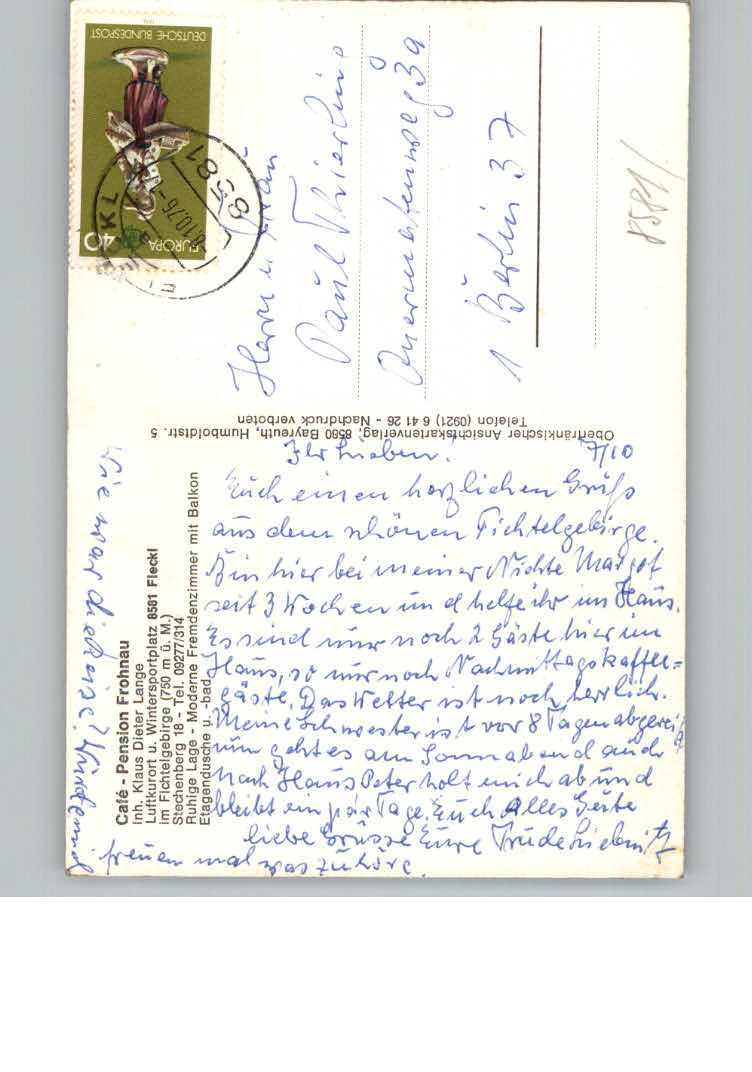 7/10
Ihr Lieben!
Euch einen herzlichen Grüß
aus dem schönen Fichtelgebirge.
Bin hier bei meiner Nichte Margot
seit 3 Wochen und helfe ihr im Haus.
Es sind nur noch 2 Gäste hier im
Haus, so nur noch Nachmittagskaffee=
gäste. Das Wetter ist noch herrlich.
Meine Schwester ist vor 8 Tagen abgerei
nun geht es am Sonnabend auch
nach Haus Peter holt mich ab und
bleibt ein pár Tage. Euch Alles Gute
liebe Grüsse Eure Trude
Wie war die Reise? Würde mich
freuen mal was zu höre.
Café - Pension Frohnau
Inh. Klaus Dieter Lange
Luftkurort u. Wintersportplatz 8581 Fleckl
im Fichtelgebirge (750 m ü. M.)
Stechenberg 18 - Tel. 09277/314
Ruhige Lage - Moderne Fremdenzimmer mit Balkon
Etagendusche u. -bad
Oberfränkischer Ansichtskartenverlag, 8580 Bayreuth, Humboldtstr. 5
Telefon (0921) 6 41 26 - Nachdruck verboten
Herrn u. Frau
Paul
3a
1 Berlin 37
8581/
DEUTSCHE BUNDESPOST
EUROPA
40
8581
.10.76-